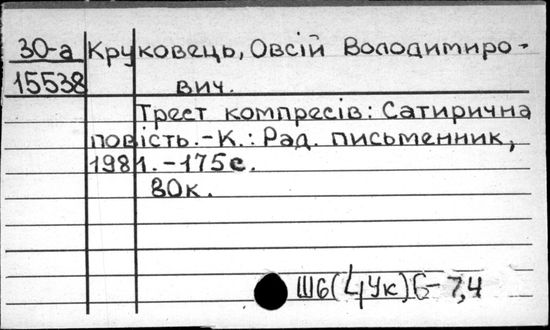 30-а Круковець, Овсій Володимиро-
15538 вич.
Трест компресів: Сатирична
повість.-К.: Рад. письменник,
1981.-175с.
80к.
Ш6(4Ук)6-7,4